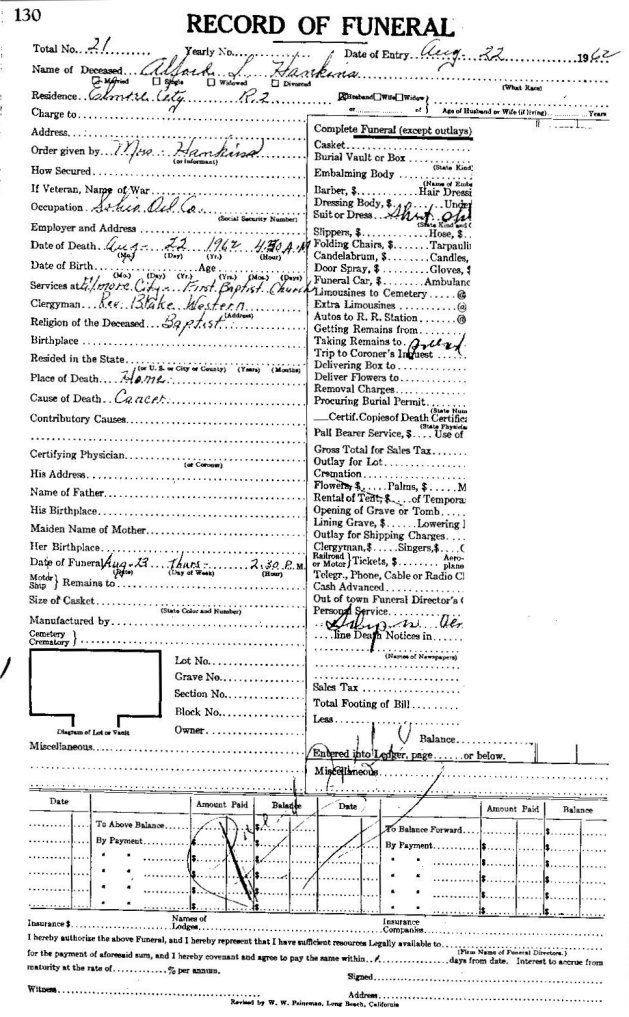 130
RECORD OF FUNERAL
Total No. 21 Yearly No. Date of Entry Aug 22 1962
Name of Deceased L. Hankins
Married Single Widowed Divorced (What Race)
Residence Elmore City R2 Husband Wife Widow
or of Age of Husband or Wife (if living) Years
Charge to
Address
Order given by Mrs. Hankins
(or Informant)
How Secured
If Veteran, Name of War
Occupation Oil Co.
(Social Security Number)
Employer and Address
Date of Death Aug - 22 1962 4:30 A.M
(Mo.) (Day) (Yr.) (Hour)
Date of Birth Age
(Mo.) (Day) (Yr.) (Yrs.) (Mos.) (Days)
Services at Elmore City - First Baptist Church
Clergyman Rev. Blake Western
(Address)
Religion of the Deceased Baptist
Birthplace
Resided in the State
(or U. S. or City or County) (Years) (Months)
Place of Death Home
Cause of Death Cancer
Contributory Causes
Certifying Physician
(or Coroner)
His Address
Name of Father
His Birthplace
Maiden Name of Mother
Her Birthplace
Date of Funeral Aug-23 Thurs - 2:30 P.M.
(Date) (Day of Week) (Hour)
Motor Ship } Remains to
Size of Casket
(State Color and Number)
Manufactured by
Cemetery Crematory }
Lot No.
Grave No.
Section No.
Block No.
Owner
Diagram of Lot or Vault
Miscellaneous
Complete Funeral (except outlays)
Casket
Burial Vault or Box
(State Kind
Embalming Body
(Name of Emba
Barber, $ Hair Dressi
Dressing Body, $ Unde
Suit or Dress
(State Kind and C
Slippers, $ Hose, $
Folding Chairs, $ Tarpauli
Candelabrum, $ Candles,
Door Spray, $ Gloves, $
Funeral Car, $ Ambulanc
Limousines to Cemetery @
Extra Limousines @
Autos to R. R. Station @
Getting Remains from
Taking Remains to
Trip to Coroner's Inquest
Delivering Box to
Deliver Flowers to
Removal Charges
Procuring Burial Permit
(State Num
Certif. Copies of Death Certific
(State Physicia
Pall Bearer Service, $ Use of
Gross Total for Sales Tax
Outlay for Lot
Cremation
Flowers, $ Palms, $ M
Rental of Tent, $ of Tempora
Opening of Grave or Tomb
Lining Grave, $ Lowering
Outlay for Shipping Charges
Clergyman, $ Singers, $
Railroad or Motor } Tickets, $ Aero-plane
Telegr., Phone, Cable or Radio C
Cash Advanced
Out of town Funeral Director's
Personal Service
line Death Notices in
(Names of Newspapers)
Sales Tax
Total Footing of Bill
Less
Balance
Entered into Ledger, page or below.
Miscellaneous
Date Amount Paid Balance Date Amount Paid Balance
To Above Balance $ To Balance Forward $
By Payment $ By Payment $
" " $ " " $
" " $ " " $
" " $ " " $
" " $ " " $
Insurance $ Names of Lodges Insurance Companies
I hereby authorize the above Funeral, and I hereby represent that I have sufficient resources Legally available to
(Firm Name of Funeral Directors.)
for the payment of aforesaid sum, and I hereby covenant and agree to pay the same within days from date. Interest to accrue from
maturity at the rate of % per annum. Signed
Witness Address
Revised by W. W. Paineman, Long Beach, California